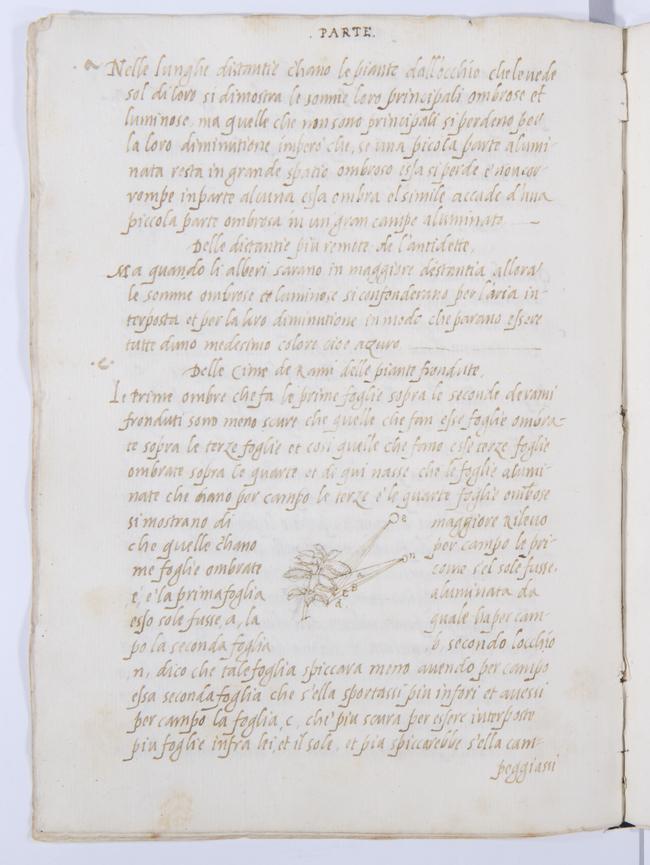 . PARTE .
Nelle lunghe distantie c'hano le piante dall'occhio che le vede
sol di loro si dimostra le somme loro principali ombrose et
luminose, ma quelle che non sono principali si perdeno per
la loro diminutione, impero che, se una picola parte alumi-
nata resta in grande spatio ombroso essa si perde è non cor
rompe in parte alcuna essa ombra el simile accade d'una
piccola parte ombrosa in un gran campo aluminato.
Delle distantie piu remote de l'antidette.
Ma quando li alberi sarano in maggiore destantia allora
le somme ombrose et luminose si confonderano per l'aria in-
terposta et per la loro diminutione in modo che parano essere
tutte d'uno medesimo colore cioe azzuro.
Delle Cime de Rami delle piante frondute.
Le prime ombre che fa le prime foglie sopra le seconde de rami
fronduti sono meno scure che quelle che fan esse foglie ombra-
te sopra le terze foglie et cosi quelle che fano esse terze foglie
ombrate sopra le quarte et di qui nasse che le foglie alumi-
nate che hano per campo le terze e le quarte foglie ombrose
si mostrano di maggiore Rilevo
che quelle c'hano per campo le pri-
me foglie ombrate come s'el sole fusse,
e, e la prima foglia aluminata da
esso sole fusse, a, la quale ha per cam-
po la seconda foglia ,b, secondo l'occhio
e
n
a
,n, dico che tale foglia spiccara meno avendo per campo
essa seconda foglia che s'ella sportassi piu infori et avessi
per campo la foglia, c, che piu scura per essere interposto
piu foglie infra lei, et il sole, et piu spiccarebbe s'ella cam-
peggiassi